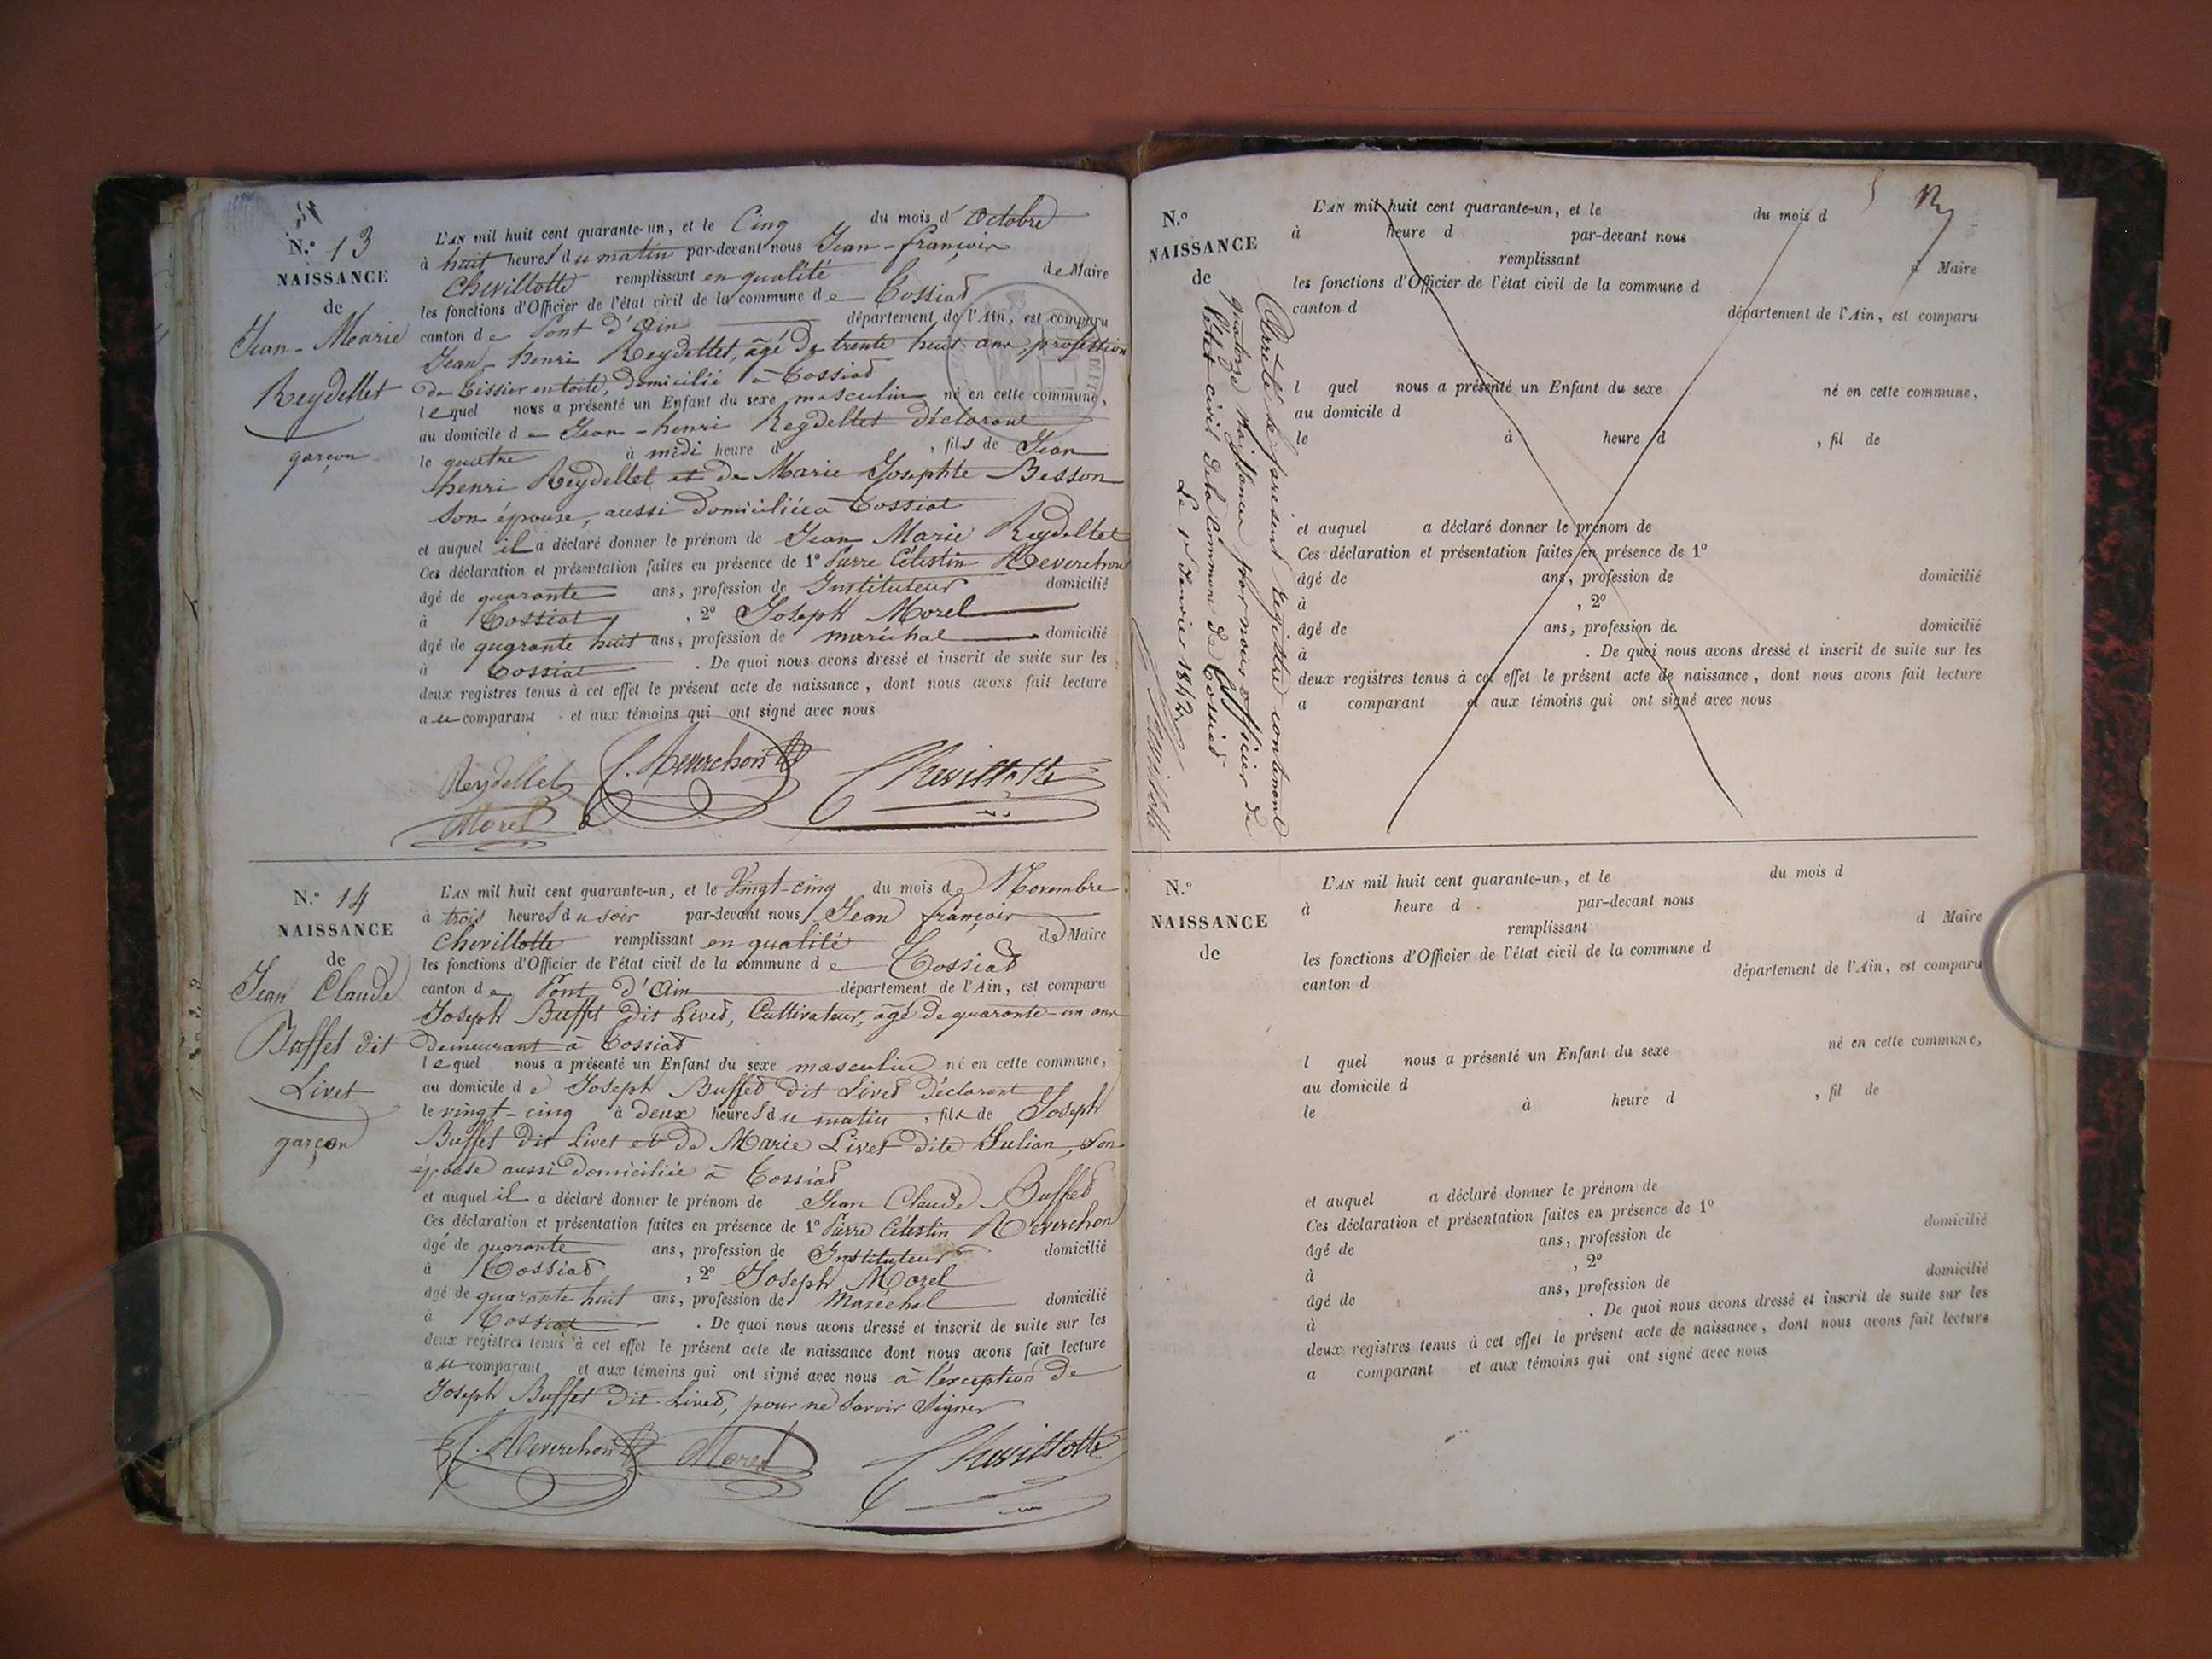 N.° 13
NAISSANCE
de
Jean-Marie
Reydellet
garçon
L'AN mil huit cent quarante-un, et le Cinq du mois d'Octobre
à huit heures du matin par-devant nous Jean-françois
Chevillotte remplissant en qualité de Maire
les fonctions d'Officier de l'état civil de la commune de Tossiat
canton de Pont d'Ain département de l'Ain, est comparu
Jean-henri Reydellet, âgé de trente huit ans, profession
de Tissier en toile, domicilié à Tossiat
lequel nous a présenté un Enfant du sexe masculin né en cette commune,
au domicile de Jean-henri Reydellet déclarant
le quatre à midi heure d , fils de Jean
henri Reydellet et de Marie Josephte Besson
Son épouse, aussi domiciliée à Tossiat
et auquel il a déclaré donner le prénom de Jean Marie Reydellet
Ces déclaration et présentation faites en présence de 1° Pierre Célestin Reverchon
âgé de quarante ans, profession de Instituteur domicilié
à Tossiat , 2° Joseph Morel
âgé de quarante huit ans, profession de maréchal domicilié
à Tossiat . De quoi nous avons dressé et inscrit de suite sur les
deux registres tenus à cet effet le présent acte de naissance, dont nous avons fait lecture
au comparant et aux témoins qui ont signé avec nous
Reydellet Reverchon Chevillotte
Morel
N.° 14
NAISSANCE
de
Jean Claude
Buffet dit
Livet
garçon
L'AN mil huit cent quarante-un, et le Vingt-cinq du mois de Novembre
à trois heures du soir par-devant nous Jean françois
Chevillotte remplissant en qualité de Maire
les fonctions d'Officier de l'état civil de la commune de Tossiat
canton de Pont d'Ain département de l'Ain, est comparu
Joseph Buffet dit Livet, Cultivateur, âgé de quarante-un ans
demeurant à Tossiat
lequel nous a présenté un Enfant du sexe masculin né en cette commune,
au domicile de Joseph Buffet dit Livet déclarant
le vingt-cinq à deux heures du matin, fils de Joseph
Buffet dit Livet et de Marie Livet dite Julian, Son
épouse aussi domiciliée à Tossiat
et auquel il a déclaré donner le prénom de Jean Claude Buffet
Ces déclaration et présentation faites en présence de 1° Pierre Célestin Reverchon
âgé de quarante ans, profession de Instituteur domicilié
à Tossiat , 2° Joseph Morel
âgé de quarante huit ans, profession de Maréchal domicilié
à Tossiat . De quoi nous avons dressé et inscrit de suite sur les
deux registres tenus à cet effet le présent acte de naissance dont nous avons fait lecture
au comparant et aux témoins qui ont signé avec nous à l'exception de
Joseph Buffet dit Livet, pour ne savoir signer
Reverchon Morel Chevillotte
N.°
NAISSANCE
de
Arrêté le présent registre contenant
quatorze Naissances par nous officier de
l'état civil de la Commune de Tossiat
Le 1er Janvier 1842
Chevillotte
L'AN mil huit cent quarante-un, et le du mois d
à heure d par-devant nous
remplissant d Maire
les fonctions d'Officier de l'état civil de la commune d
canton d département de l'Ain, est comparu
l quel nous a présenté un Enfant du sexe né en cette commune,
au domicile d
le à heure d , fil de
et auquel a déclaré donner le prénom de
Ces déclaration et présentation faites en présence de 1°
âgé de ans, profession de domicilié
à , 2°
âgé de ans, profession de domicilié
à . De quoi nous avons dressé et inscrit de suite sur les
deux registres tenus à cet effet le présent acte de naissance, dont nous avons fait lecture
a comparant et aux témoins qui ont signé avec nous
N.°
NAISSANCE
de
L'AN mil huit cent quarante-un, et le du mois d
à heure d par-devant nous
remplissant d Maire
les fonctions d'Officier de l'état civil de la commune d
canton d département de l'Ain, est comparu
l quel nous a présenté un Enfant du sexe né en cette commune,
au domicile d
le à heure d , fil de
et auquel a déclaré donner le prénom de
Ces déclaration et présentation faites en présence de 1°
âgé de ans, profession de domicilié
à , 2°
âgé de ans, profession de domicilié
à . De quoi nous avons dressé et inscrit de suite sur les
deux registres tenus à cet effet le présent acte de naissance, dont nous avons fait lecture
a comparant et aux témoins qui ont signé avec nous